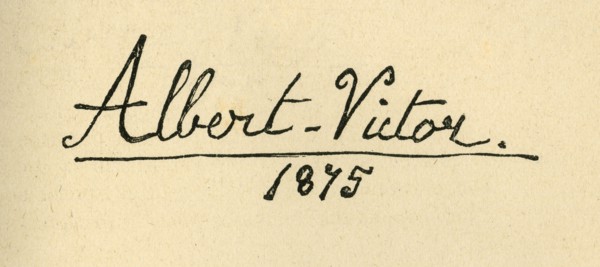 Albert-Victor.
1875